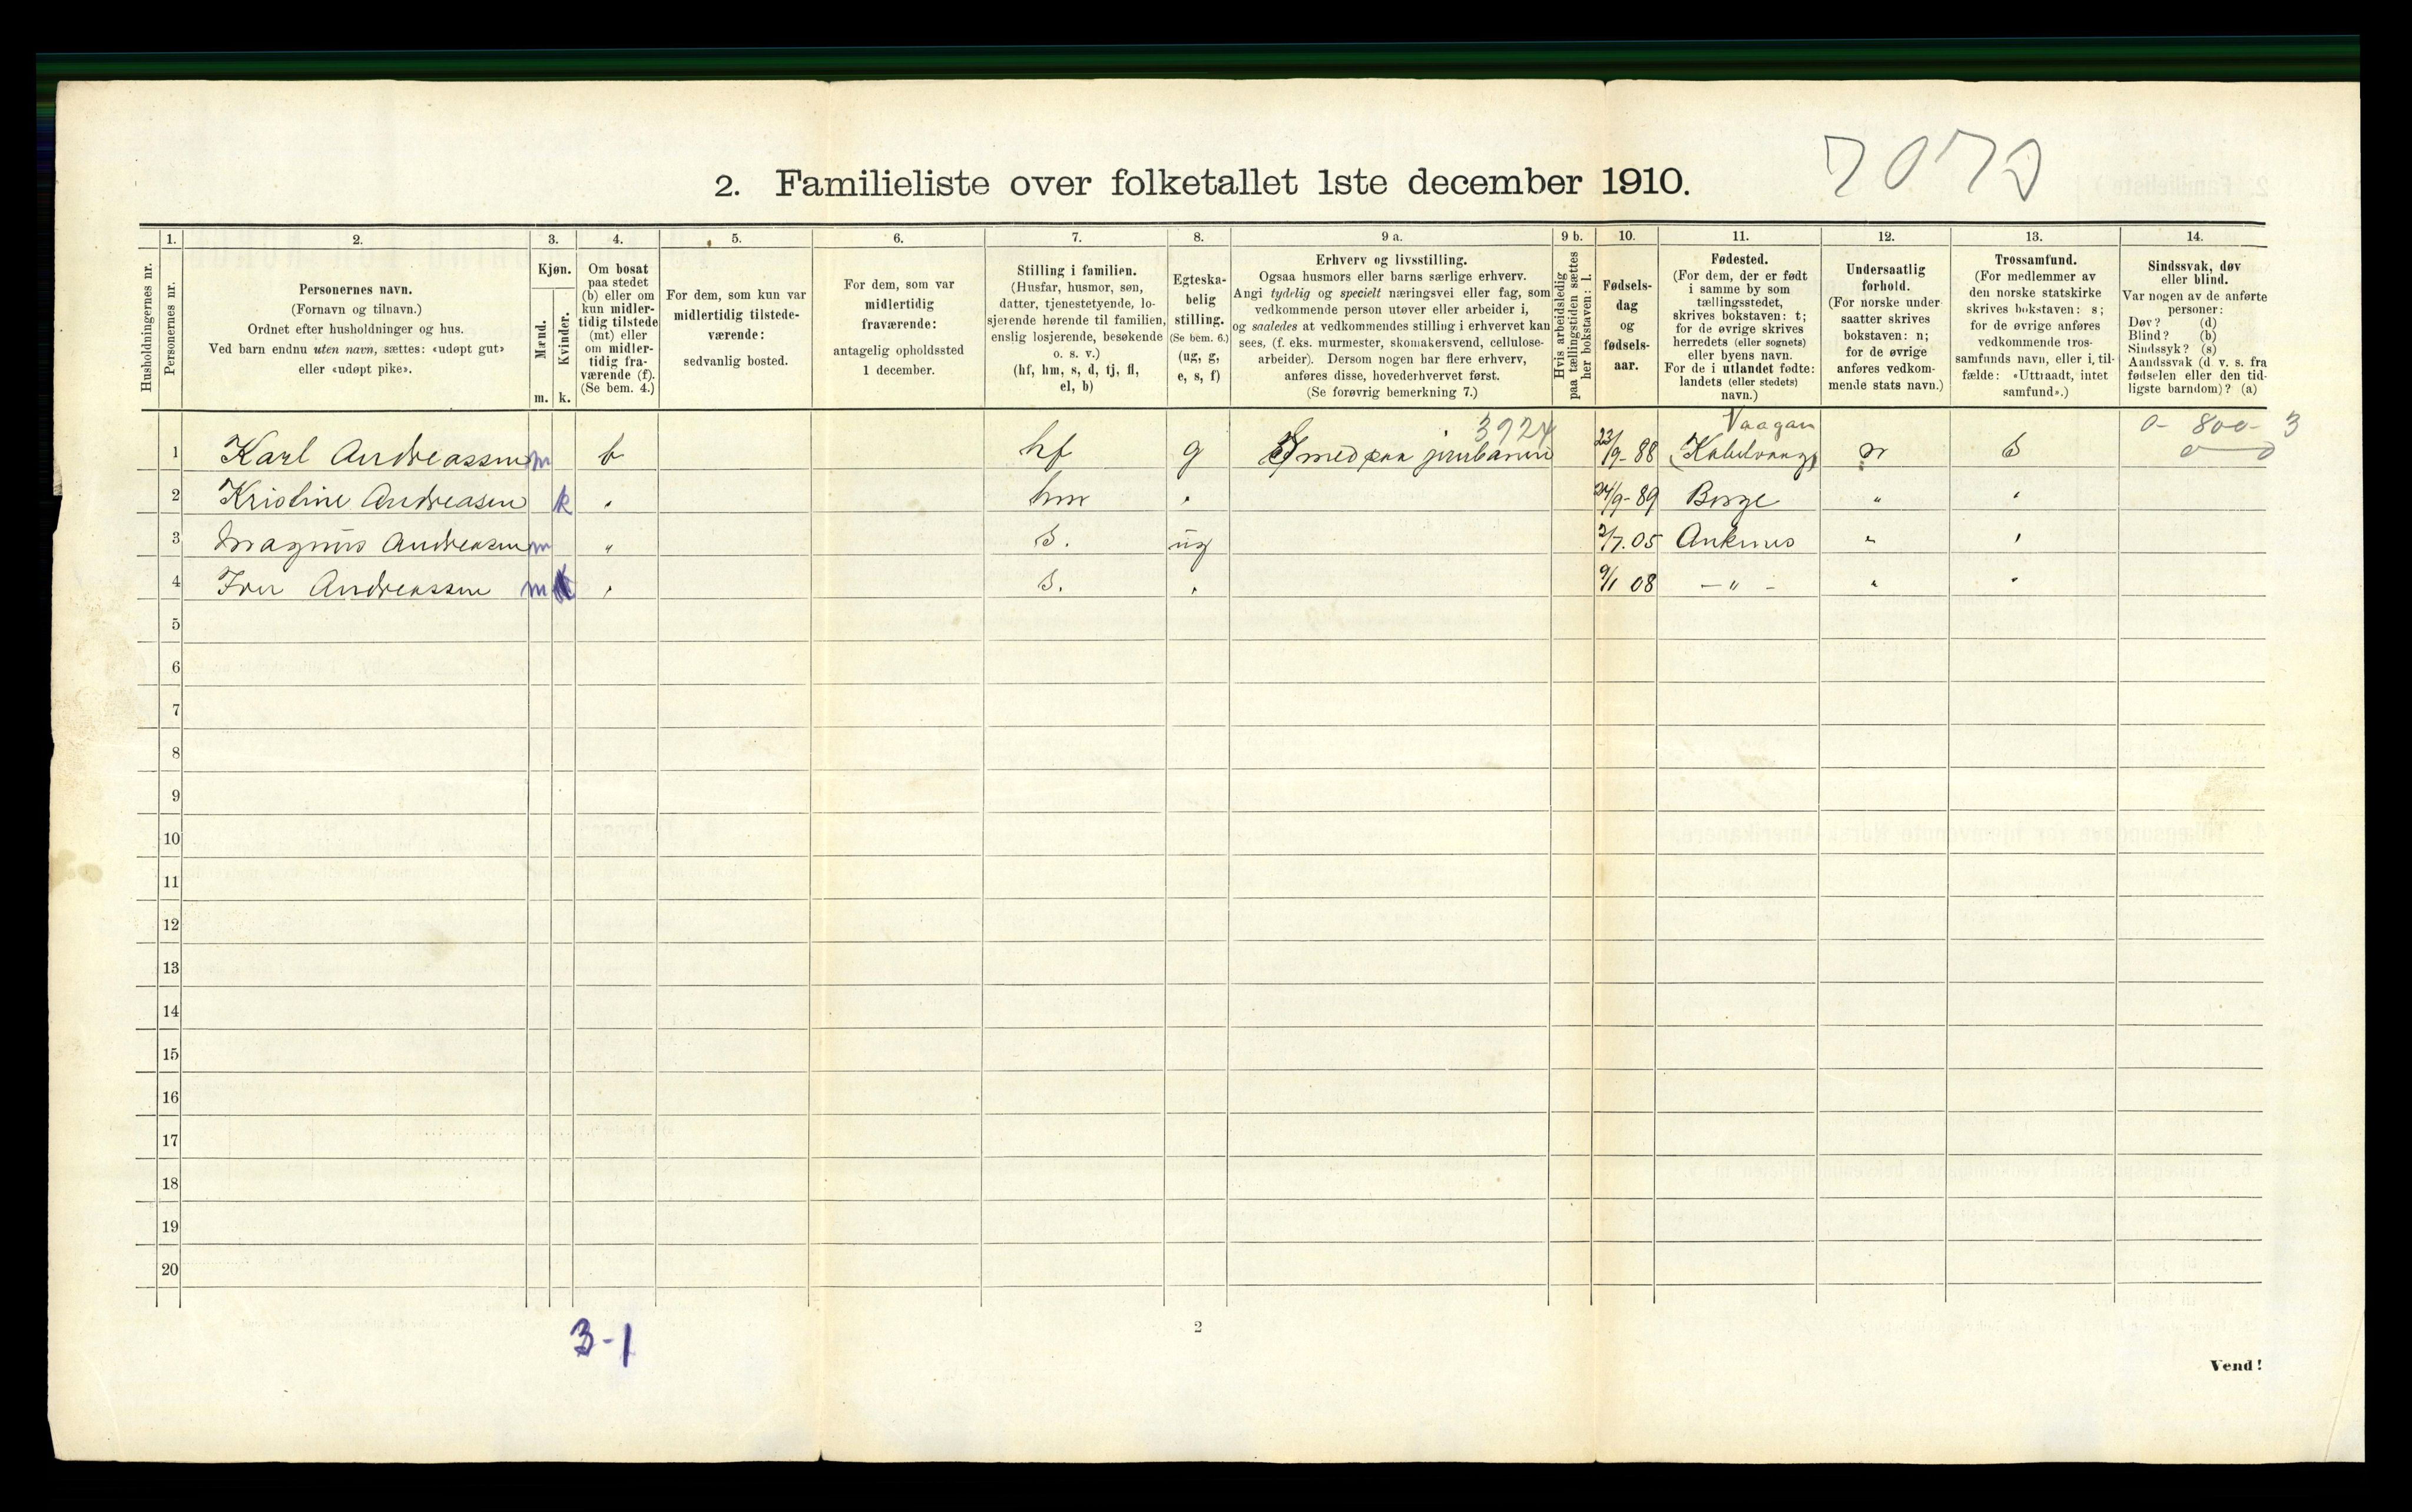 7073
2. Familieliste over folketallet 1ste december 1910.
1. 2. 3. 4. 5. 6. 7. 8. 9 a. 9 b. 10. 11. 12. 13. 14.
Husholdningernes nr.
Personernes nr.
Personernes navn.
(Fornavn og tilnavn.)
Ordnet efter husholdninger og hus.
Ved barn endnu uten navn, sættes: «udøpt gut»
eller «udøpt pike».
Kjøn.
Mænd.
Kvinder.
m. k.
Om bosat
paa stedet
(b) eller om
kun midler-
tidig tilstede
(mt) eller
om midler-
tidig fra-
værende (f).
(Se bem. 4.)
For dem, som kun var
midlertidig tilstede-
værende:
sedvanlig bosted.
For dem, som var
midlertidig
fraværende:
antagelig opholdssted
1 december.
Stilling i familien.
(Husfar, husmor, søn,
datter, tjenestetyende, lo-
sjerende hørende til familien,
enslig losjerende, besøkende
o. s. v.)
(hf, hm, s, d, tj, fl,
el, b)
Egteska-
belig
stilling.
(Se bem. 6.)
(ug, g,
e, s, f)
Erhverv og livsstilling.
Ogsaa husmors eller barns særlige erhverv.
Angi tydelig og specielt næringsvei eller fag, som
vedkommende person utøver eller arbeider i,
og saaledes at vedkommendes stilling i erhvervet kan
sees, (f. eks. murmester, skomakersvend, cellulose-
arbeider). Dersom nogen har flere erhverv,
anføres disse, hovederhvervet først.
(Se forøvrig bemerkning 7.)
Hvis arbeidsledig
paa tællingstiden sættes
her bokstaven: l.
Fødsels-
dag
og
fødsels-
aar.
Fødested.
(For dem, der er født
i samme by som
tællingsstedet,
skrives bokstaven: t;
for de øvrige skrives
herredets (eller sognets)
eller byens navn.
For de i utlandet fødte:
landets (eller stedets)
navn.)
Undersaatlig
forhold.
(For norske under-
saatter skrives
bokstaven: n;
for de øvrige
anføres vedkom-
mende stats navn.)
Trossamfund.
(For medlemmer av
den norske statskirke
skrives bokstaven: s;
for de øvrige anføres
vedkommende tros-
samfunds navn, eller i til-
fælde: «Uttraadt, intet
samfund».)
Sindssvak, døv
eller blind.
Var nogen av de anførte
personer:
Døv? (d)
Blind? (b)
Sindssyk? (s)
Aandssvak (d. v. s. fra
fødselen eller den tid-
ligste barndom)? (a)
3924 Vaagan 0- 800- 3
1 Karl Andreassen m b hf g Smed paa jernbanen 23/9-88 (Kabelvaag) n S
2 Kristine Andreasen k " hm " 24/9-89 Borge " "
3 Magnus Andreasen m " s. ug 2/7.05 Ankenes " "
4 Iver Andreassen m " s. " 9/1 08 - " - " "
5
6
7
8
9
10
11
12
13
14
15
16
17
18
19
20
3-1
2
Vend!